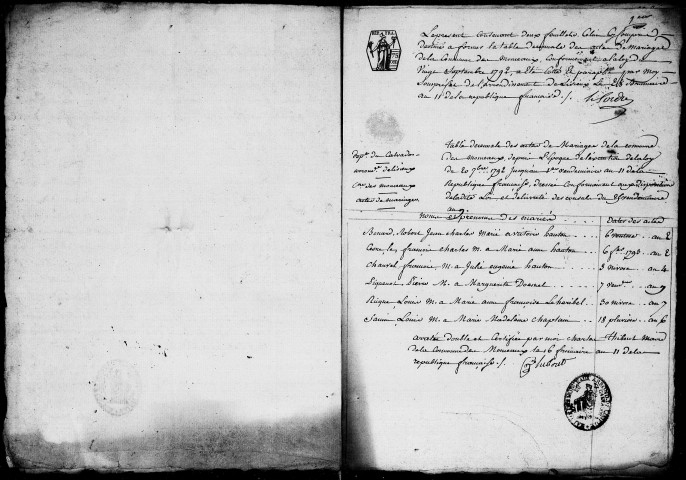 Le present contenant deux feuillets Celui Cy Compris
destiné a former la table decennale des actes de Mariages
de la Commune des Monceaux, Conformement a la loy du
Vingt Septembre 1792, a été Cotté & paraphé par moy
Soupréfet de l'arrondissement de Lisieux Le 28 Brumaire
au 11 de la republique française /.
dept. du Calvados
arrond. de Lisieux
Cne des monceaux
actes de mariages
table decennale des actes de Mariages de la commune
des Monceaux, depuis L'epoque de l'execution de la loy
du 20 7bre 1792 jusqu'au 1er vendemiaire an 11 de la
Republique française, dressée Conformement aux dispositions
de la dite Loi et de l'arrêté des consuls du
an 9
noms et prenoms des mariés
Dates des actes
Renard, Robert Jean charles Marié a victoire hauton
6 ventose .. an 2
francois charles m. a Marie anne hauton
6 1793 .. an 2
Chauvel francois M. a Julie eugenie hauton
3 nivose .. an 4
Ligneux Pierre M. a Marguerite
7 vend. .. an 9
Louis M. a Marie anne francoise Lebaribel
30 nivose .. an 7
Louis M. a Marie Madelaine chaplain
18 pluviose .. an 6
arrêté double et Certifié par moi charles Maire
de la Commune des Monceaux le 6 frimaire an 11 de la
republique française /.